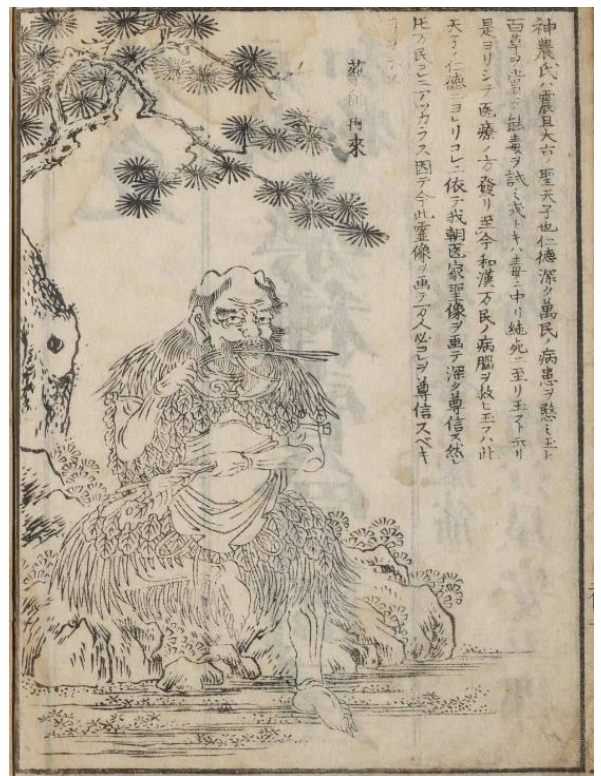 神農氏ハ震旦大古ノ聖天子也仁徳深ク萬民ノ病患ヲ愍ミ玉ト
百草ヲ嘗テ能毒ヲ試ミ或トキハ毒ニ中リ絶死ニ至リ玉フト云リ
是ヨリシテ医療ノ方發リ至今和漢万民ノ病脳ヲ救ヒ玉フハ此
天子仁徳ニヨレリコレニ依テ我朝医家聖像ヲ画テ深ク尊信ス然レ
圧万民コレニアツカラス因テ今此霊像ヲ画テ万人必コレヲ尊信スベキ